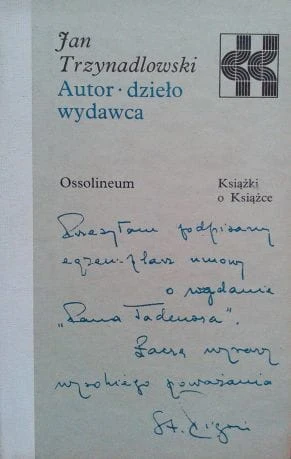 Jan
Trzynadlowski
Autor · dzieło
wydawca
Ossolineum
Książki
o Książce
Przesyłam podpisany
egzemplarz umowy
o wydanie
„Pana Tadeusza".
Łączę wyrazy
wysokiego poważania
St. Pigoń